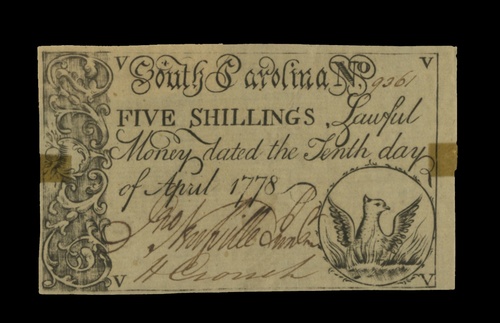 V South Carolina No 9361 V
FIVE SHILLINGS Lawful
Money dated the Tenth day
of April 1778
H Crouch
V V